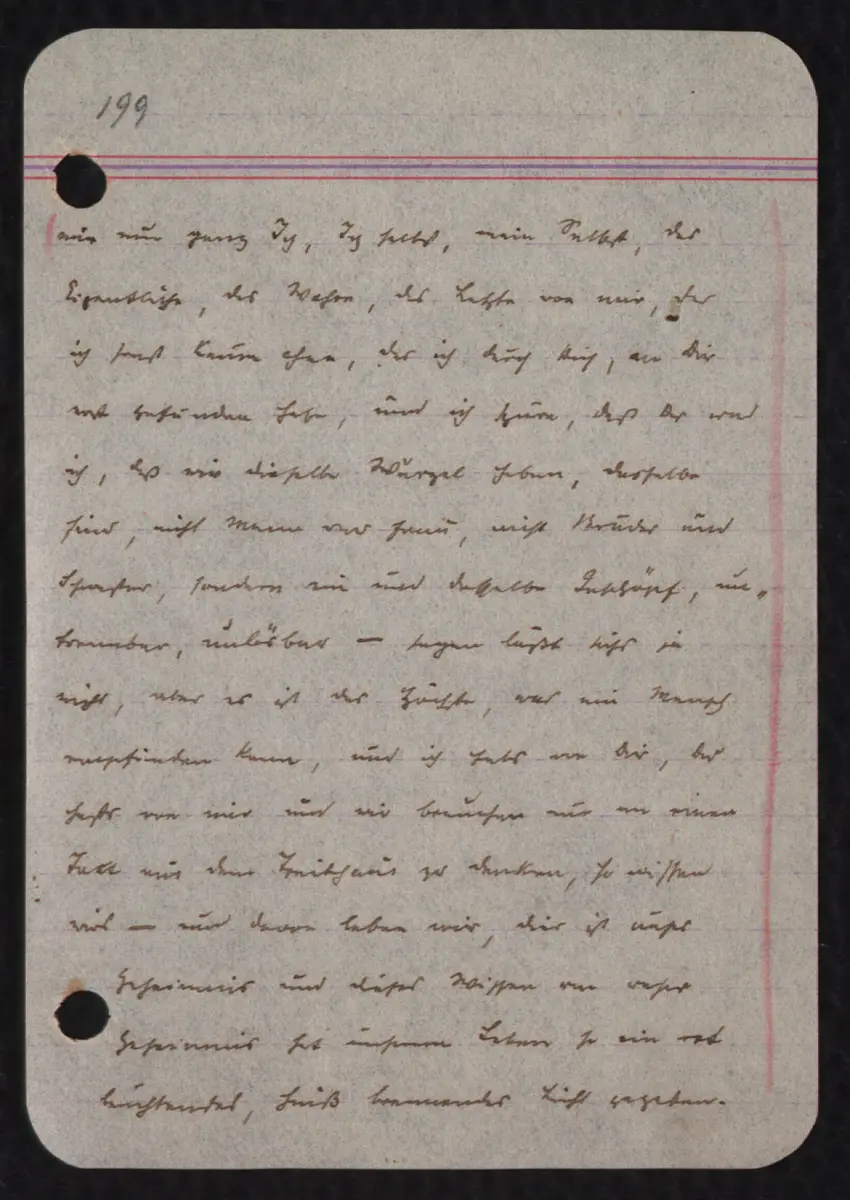 199
nur ganz Ich, Ich selbst, mein Selbst, das
Eigentliche, das Wahre, das Letzte von mir, das
ich sonst kaum ahne, das ich durch Dich, an Dir
erst gefunden habe, und ich spüre, daß Du und
ich, daß wir dieselbe Wurzel haben, dasselbe
sind, nicht Mann und Frau, nicht Bruder und
Schwester, sondern ein und dasselbe Geschöpf, un„
trennbar, unlösbar — sagen läßt sichs ja
nicht, aber es ist das Höchste, was ein Mensch
empfinden kann, und ich habs von Dir, Du
hasts von mir und wir brauchen nur an einen
Takt aus dem Treibhaus zu denken, so wissen
wirs — und davon leben wir, dies ist unser
Geheimnis und dieses Wissen um unser
Geheimnis hat unserem Leben so ein rot
leuchtendes, heiß brennendes Licht gegeben.